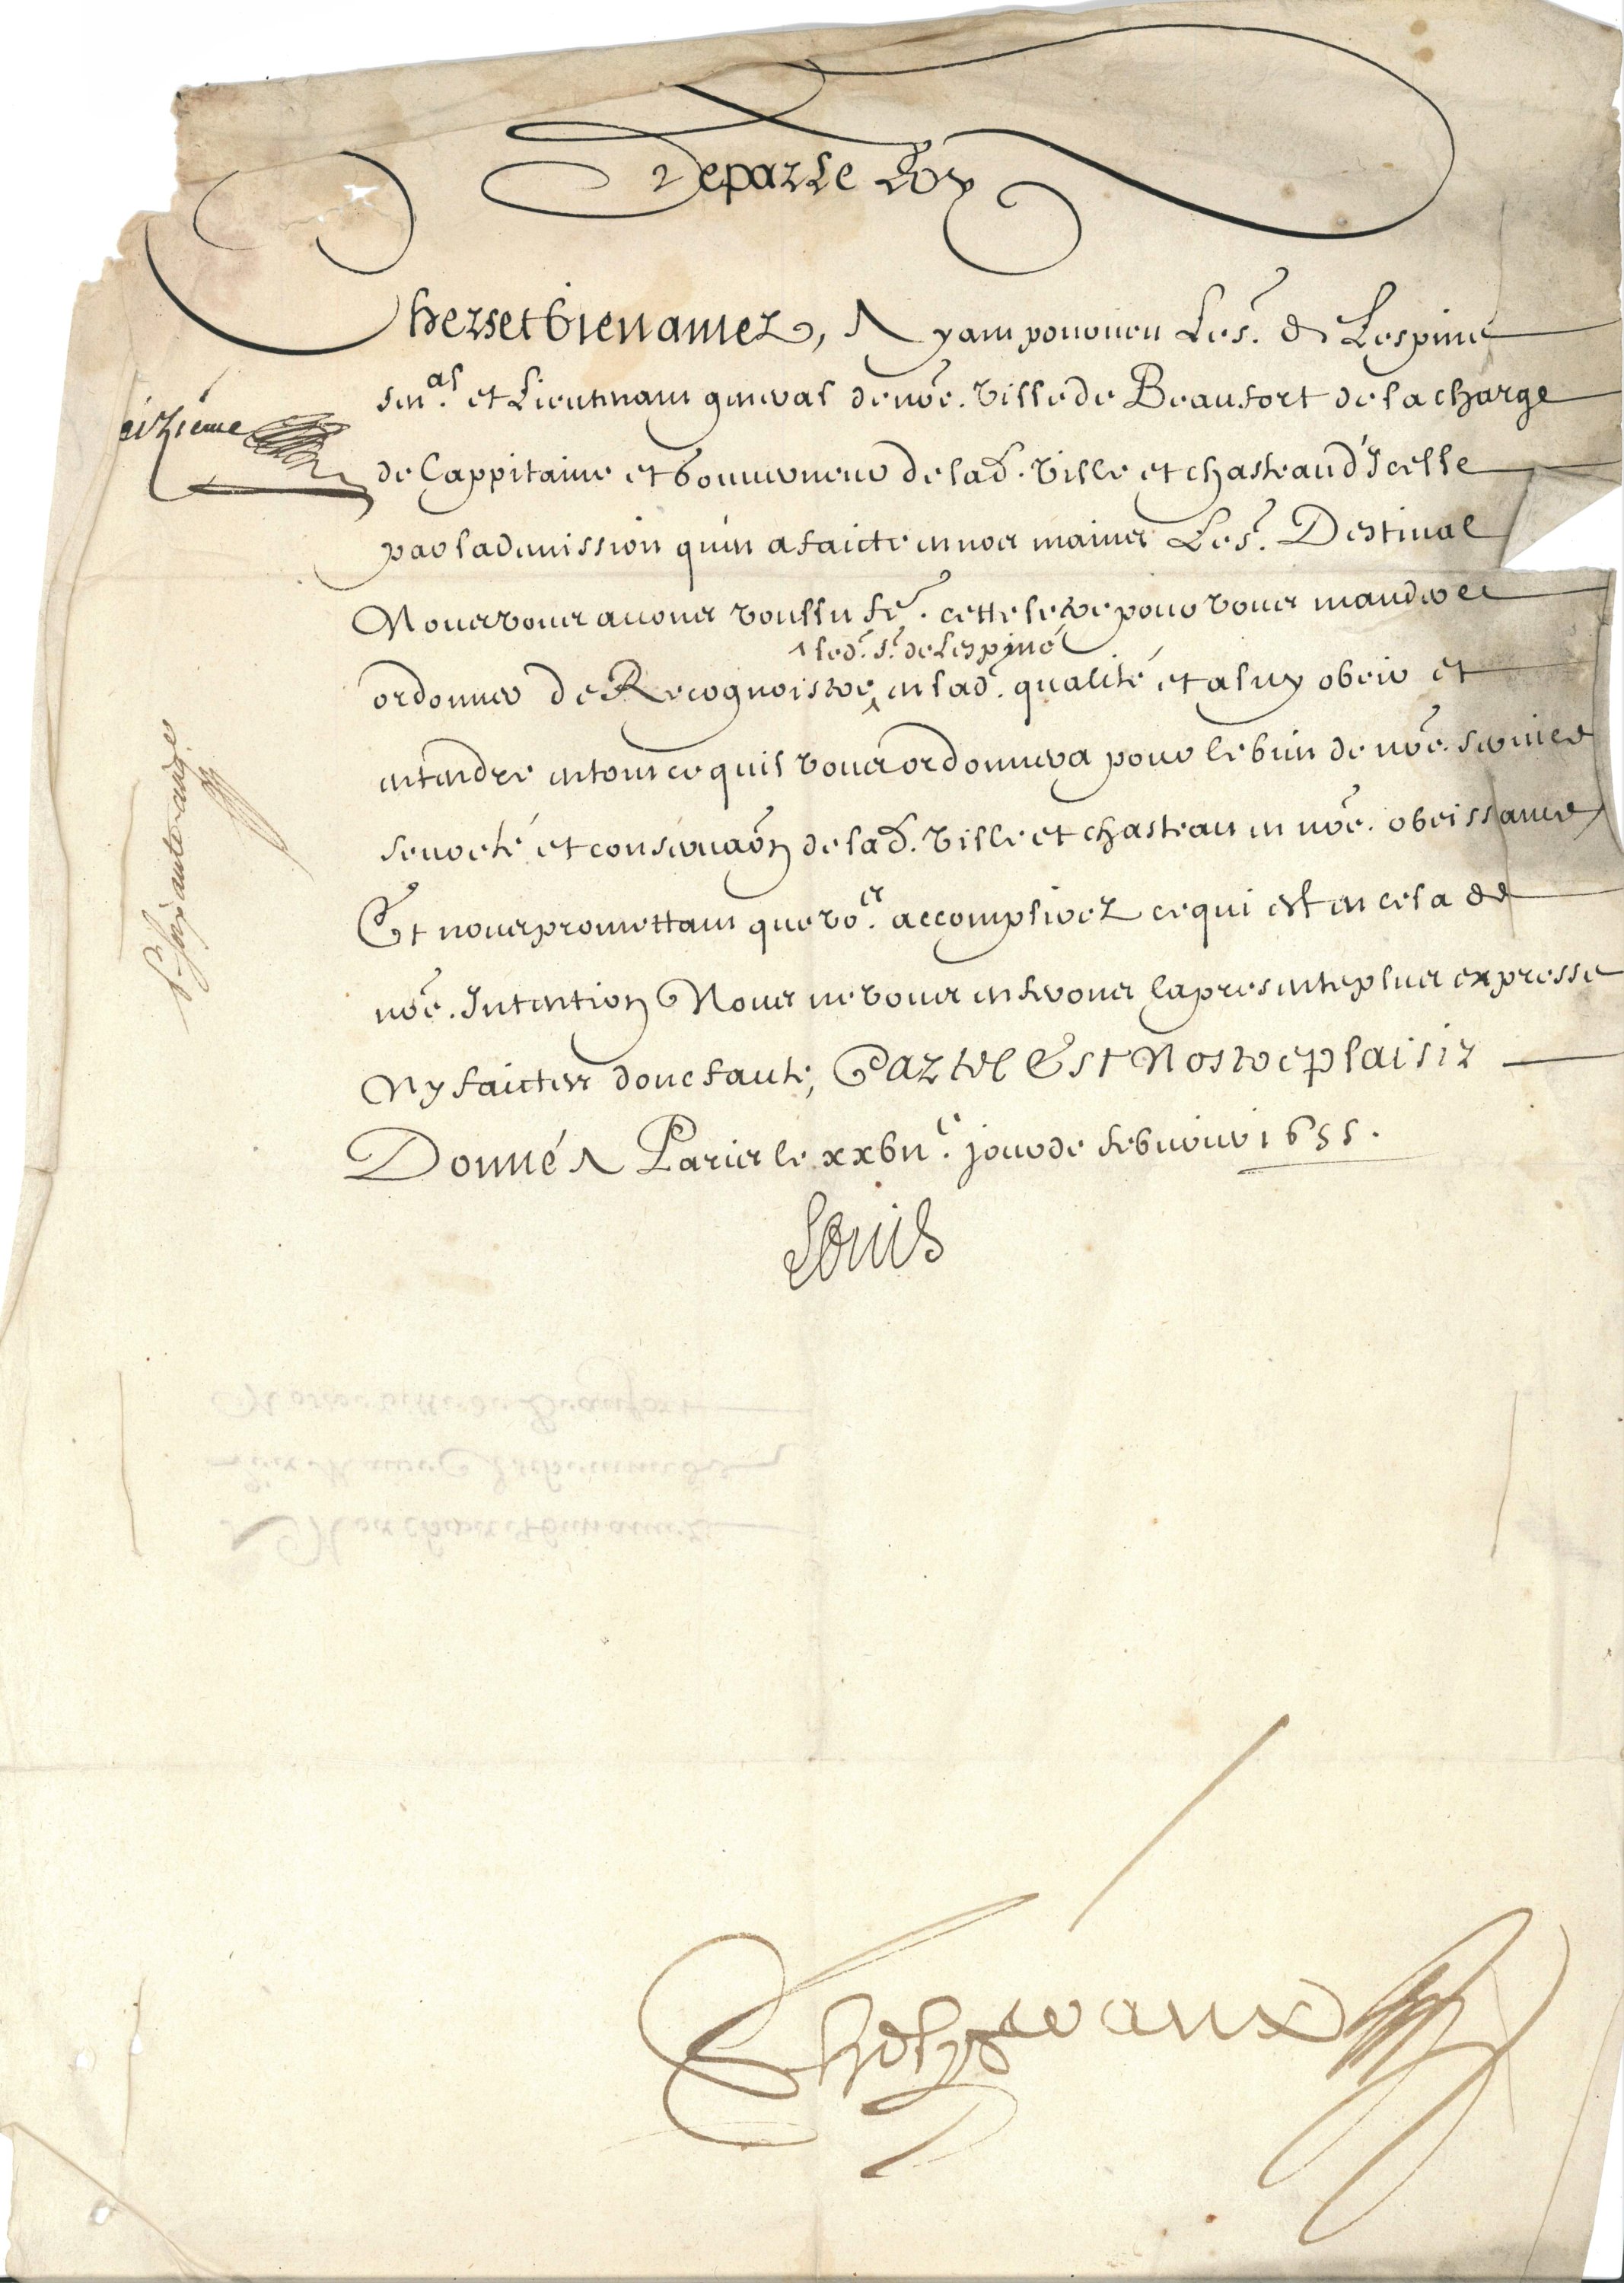 De par Le Roy
Chers et bien amez, Ayant pourveu Le Sr. de Lespine
Senal. et Lieutenant general de nre. Ville de Beaufort de la charge
de Cappitaine et Gouverneur de lad. Ville et chasteau d'Icelle
par la demission qu'en a faicte en nos mains Le Sr. Destival
Nous vous avons voullu fe. cette lettre pour vous mander et
ordonner de Recognoistre en lad. qualité et a luy obeir et
led. Sr. de Lespine
entendre en tout ce quil vous ordonnera pour le bien de nre. service
seureté et conservaon de lad. Ville et chasteau en nre. obeissance
Et nous promettant que vos. accomplirez ce qui est en cela de
nre. Intention Nous ne vous en ferons la presente plus expresse
Ny faictes donc faute, Car tel Est Nostre plaisir
Donné A Paris le xxvue. jour de febvrier 1655.
Louis
Phelypeaux